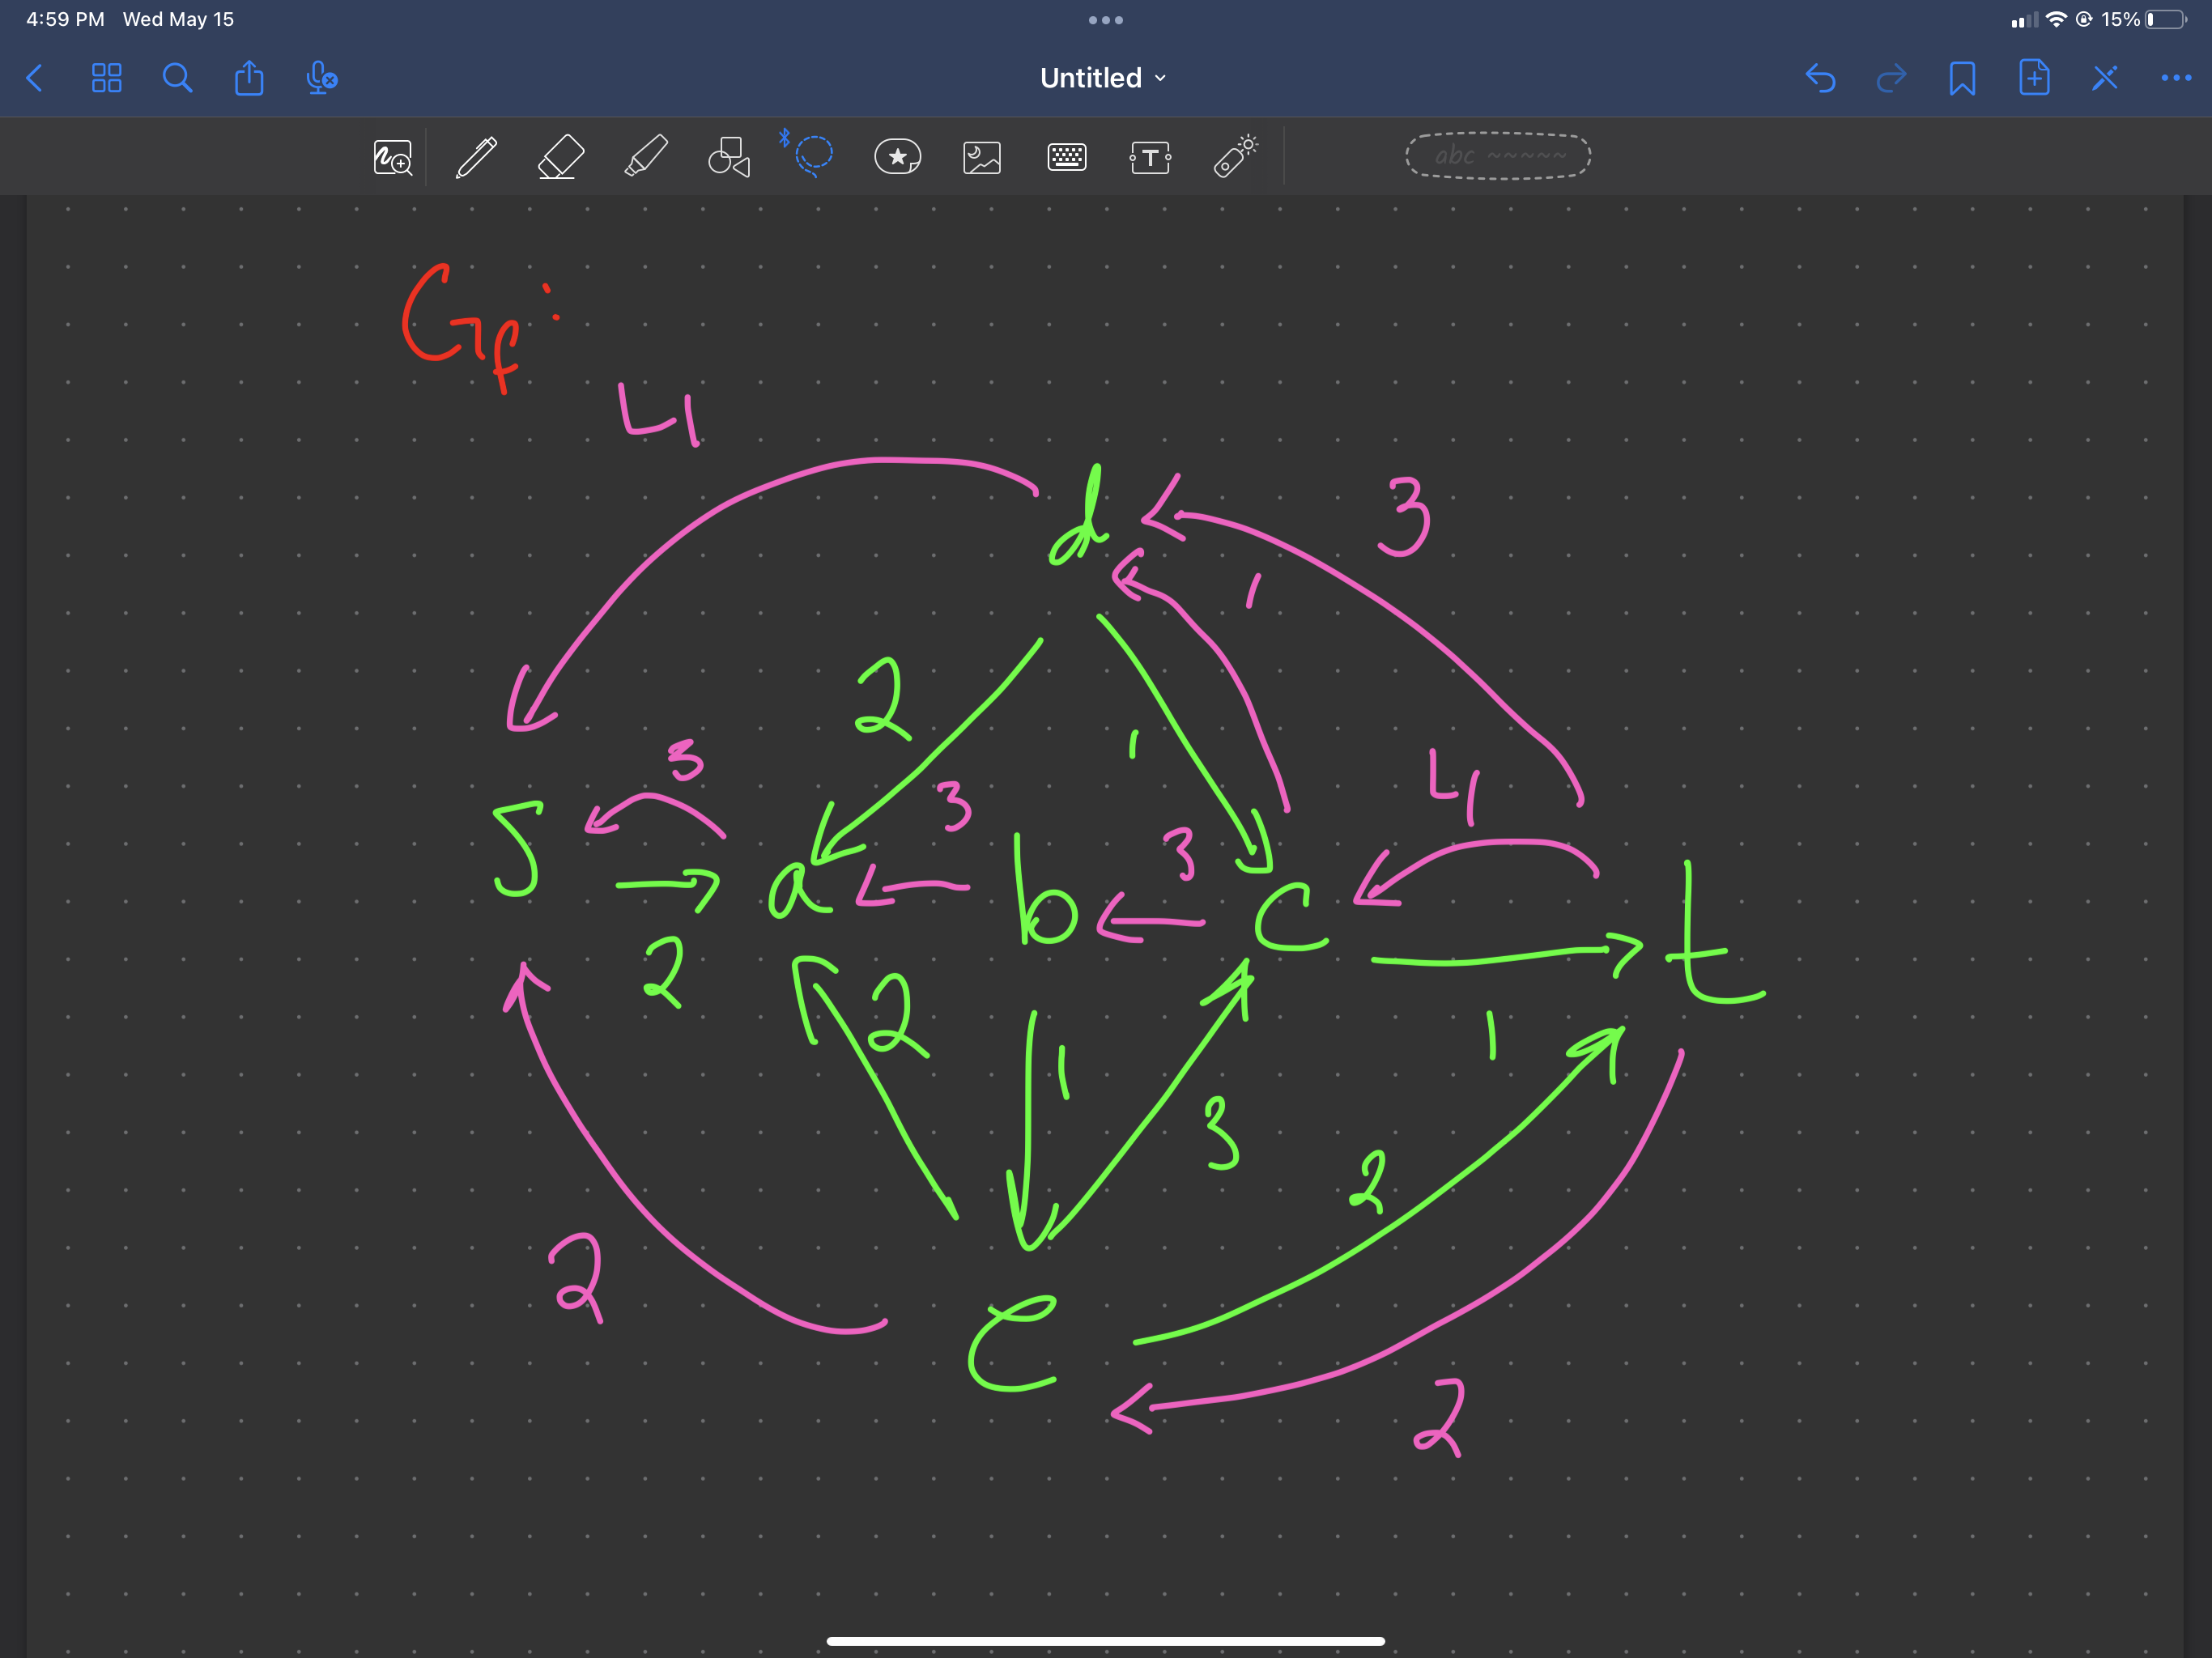 4:59 PM Wed May 15
15%
Untitled
T
abc
Gf:
4
d
3
1
2
1
3
3
4
3
s
a
b
c
t
2
2
1
1
3
2
2
e
2